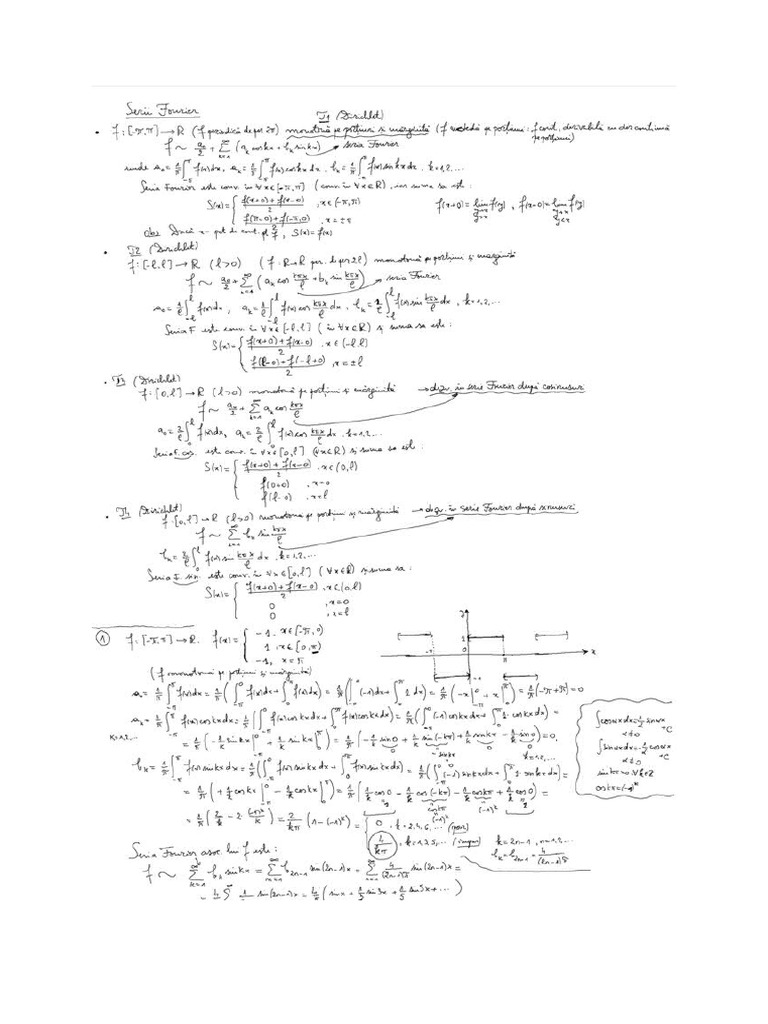 Serii Fourier
T1 (Dirichlet)
• f: [-π,π] → R (f periodică de per 2π) monotonă pe porțiuni și mărginită (f netedă pe porțiuni: f cont, derivabilă cu der continuă pe porțiuni)
f ~ a₀/2 + Σ_{k=1}^∞ (aₖ cos kx + bₖ sin kx) → seria Fourier
unde a₀ = 1/π ∫_{-π}^{π} f(x)dx, aₖ = 1/π ∫_{-π}^{π} f(x) cos kx dx, bₖ = 1/π ∫_{-π}^{π} f(x) sin kx dx, k=1,2,...
Seria Fourier este conv. în ∀x∈[-π,π] (conv. în ∀x∈R), iar suma sa este:
S(x) = { (f(x+0)+f(x-0))/2, x∈(-π,π)
(f(π-0)+f(-π+0))/2, x=±π
f(x+0) = lim_{y→x, y>x} f(y), f(x-0) = lim_{y→x, y<x} f(y)
Obs Dacă x- pct de cont. pt f, S(x)=f(x)
• T2 (Dirichlet)
f: [-l,l] → R (l>0) (f: R→R per. de per 2l) monotonă pe porțiuni și mărginită
f ~ a₀/2 + Σ_{k=1}^∞ (aₖ cos kπx/l + bₖ sin kπx/l) → seria Fourier
a₀ = 1/l ∫_{-l}^{l} f(x)dx, aₖ = 1/l ∫_{-l}^{l} f(x) cos kπx/l dx, bₖ = 1/l ∫_{-l}^{l} f(x) sin kπx/l dx, k=1,2,...
Seria F. este conv. în ∀x∈[-l,l] (în ∀x∈R) și suma sa este:
S(x) = { (f(x+0)+f(x-0))/2, x∈(-l,l)
(f(l-0)+f(-l+0))/2, x=±l
• T3 (Dirichlet)
f: [0,l] → R (l>0) monotonă pe porțiuni și mărginită → dezv. în serie Fourier după cosinusuri
f ~ a₀/2 + Σ_{k=1}^∞ aₖ cos kπx/l
a₀ = 2/l ∫_0^l f(x)dx, aₖ = 2/l ∫_0^l f(x) cos kπx/l dx, k=1,2,...
Seria F. cos. este conv. în ∀x∈[0,l] (∀x∈R) și suma sa este:
S(x) = { (f(x+0)+f(x-0))/2, x∈(0,l)
f(0+0), x=0
f(l-0), x=l
• T4 (Dirichlet)
f: [0,l] → R (l>0) monotonă pe porțiuni și mărginită → dezv. în serie Fourier după sinusuri
f ~ Σ_{k=1}^∞ bₖ sin kπx/l
bₖ = 2/l ∫_0^l f(x) sin kπx/l dx, k=1,2,...
Seria F. sin. este conv. în ∀x∈[0,l] (∀x∈R) și suma sa:
S(x) = { (f(x+0)+f(x-0))/2, x∈(0,l)
0, x=0
0, x=l
① f: [-π,π] → R. f(x) = { -1, x∈[-π,0)
1, x∈[0,π)
-1, x=π
y
1
-π
π
x
-1
(f monotonă pe porțiuni și mărginită)
a₀ = 1/π ∫_{-π}^{π} f(x)dx = 1/π (∫_{-π}^0 f(x)dx + ∫_0^π f(x)dx) = 1/π (∫_{-π}^0 (-1)dx + ∫_0^π 1 dx) = 1/π (-x|_{-π}^0 + x|_0^π) = 1/π (-π+π) = 0
aₖ = 1/π ∫_{-π}^{π} f(x) cos kx dx = 1/π (∫_{-π}^0 f(x) cos kx dx + ∫_0^π f(x) cos kx dx) = 1/π (∫_{-π}^0 (-1) cos kx dx + ∫_0^π 1·cos kx dx) =
k=1,2,...
= 1/π (-1/k sin kx|_{-π}^0 + 1/k sin kx|_0^π) = 1/π (-1/k sin 0 + 1/k sin(-kπ) + 1/k sin kπ - 1/k sin 0) = 0,
k=1,2,...
bₖ = 1/π ∫_{-π}^{π} f(x) sin kx dx = 1/π (∫_{-π}^0 f(x) sin kx dx + ∫_0^π f(x) sin kx dx) = 1/π (∫_{-π}^0 (-1) sin kx dx + ∫_0^π 1·sin kx dx) =
= 1/π (+1/k cos kx|_{-π}^0 - 1/k cos kx|_0^π) = 1/π (1/k cos 0 - 1/k cos(-kπ) - 1/k cos kπ + 1/k cos 0) =
cos kπ (-1)^k (-1)^k
= 1/π (2/k - 2·(-1)^k/k) = 2/kπ (1-(-1)^k) = { 0, k=2,4,6,... (par)
4/kπ, k=1,3,5,... (impar)
k=2n-1, n=1,2,...
bₖ = b_{2n-1} = 4/((2n-1)π)
∫cos αx dx = 1/α sin αx + C
α≠0
∫sin αx dx = -1/α cos αx + C
α≠0
sin kπ = 0, ∀k∈Z
cos kπ = (-1)^k
Seria Fourier asoc. lui f este:
f ~ Σ_{k=1}^∞ bₖ sin kx = Σ_{n=1}^∞ b_{2n-1} sin(2n-1)x = Σ_{n=1}^∞ 4/((2n-1)π) sin(2n-1)x =
sin(2n-1)x = 4/π (sin x + 1/3 sin 3x + 1/5 sin 5x + ...)